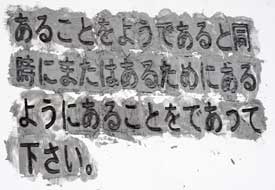 あることをようであると同
時にまたはあるためにある
ようにあることをであって
下さい。